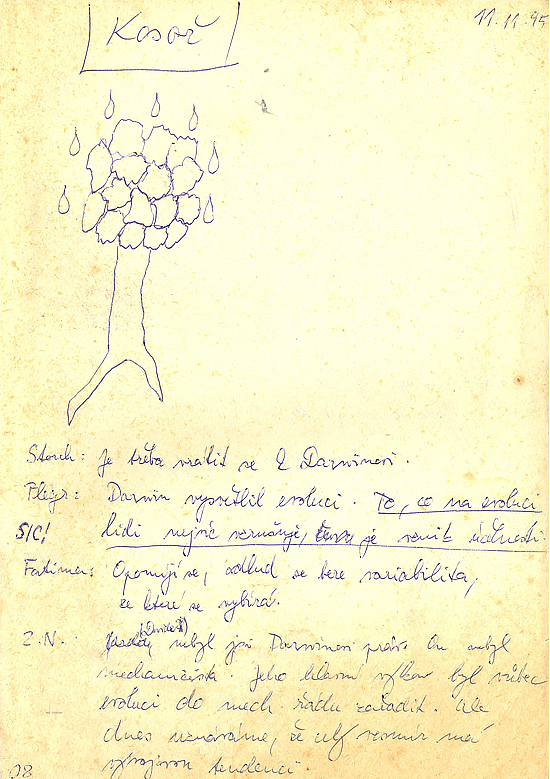 Kosař
11.11.95
Storch: Je třeba vrátit se k Darwinovi.
Flegr: Darwin vysvětlil evoluci. To, co na evoluci
SIC! lidi nejvíc vzrušuje, je vznik účelnosti.
Fatima: Opomíjí se, odkud se bere variabilita,
ze které se vybírá.
Z.N. (Davide!) nebyl jsi Darwinovi práv. On nebyl
mechanicista. Jeho hlavní výkon byl vůbec
evoluci do mech. řádu zařadit. Ale
dnes uznáváme, že celý vesmír má
vývojovou tendenci.